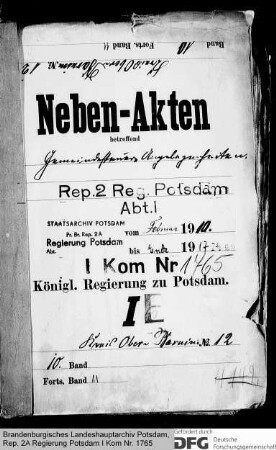 Band 10
Forts. Band 11
Kreis Ober Barnim No 12
Neben-Akten
betreffend
Gemeindesteuer Angelegenheiten.
Rep. 2 Reg. Potsdam
Abt. I
STAATSARCHIV POTSDAM
Pr. Br. Rep. 2A
Regierung Potsdam
Abt.
vom Februar 1910.
bis Ende 1917
I Kom Nr 1765
Königl. Regierung zu Potsdam.
I E
Kreis Ober Barnim No 12
10. Band
Forts. Band 11
Brandenburgisches Landeshauptarchiv Potsdam,
Rep. 2A Regierung Potsdam I Kom Nr. 1765
Gefördert durch
DFG Deutsche
Forschungsgemeinschaft